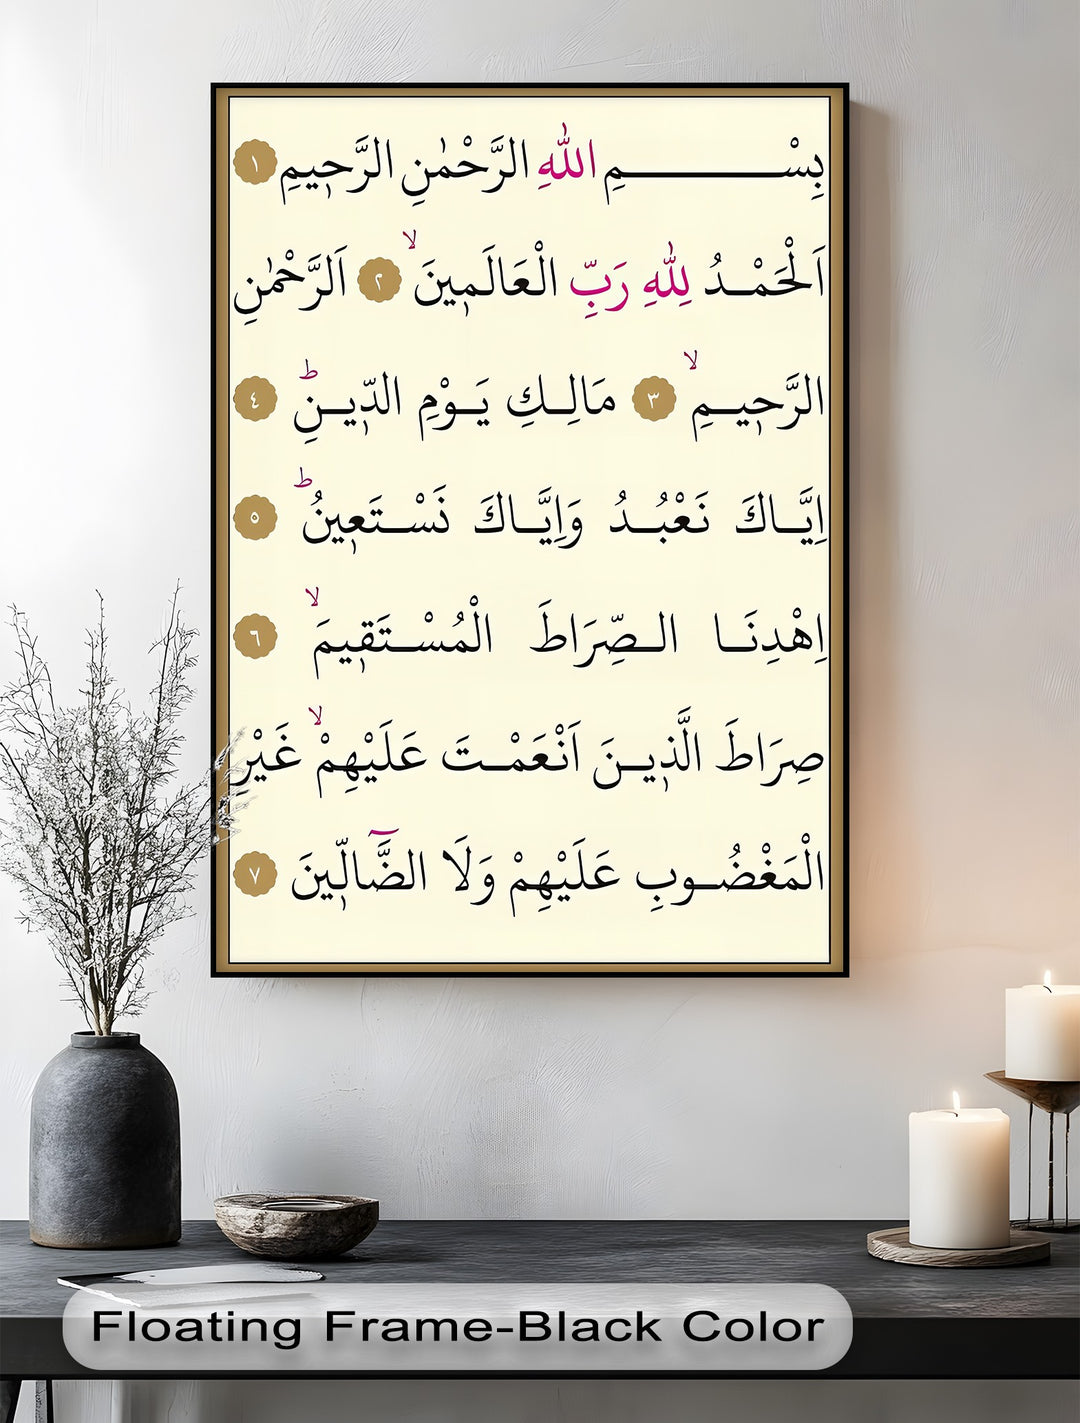 بِسْـــــــــمِ اللّٰهِ الرَّحْمٰنِ الرَّح۪يمِ ١
اَلْحَمْـدُ لِلّٰهِ رَبِّ الْعَالَم۪ينَۙ ٢ اَلرَّحْمٰنِ
الرَّح۪يـمِۙ ٣ مَالِـكِ يَـوْمِ الدّ۪يـنِۜ ٤
اِيَّـاكَ نَعْبُـدُ وَاِيَّـاكَ نَسْـتَع۪ينُۜ ٥
اِهْدِنَـا الـصِّرَاطَ الْمُسْـتَق۪يمَۙ ٦
صِرَاطَ الَّذ۪يـنَ اَنْعَمْـتَ عَلَيْهِمْۙ غَيْرِ
الْمَغْضُـوبِ عَلَيْهِمْ وَلَا الضَّٓالّ۪ينَ ٧
Floating Frame-Black Color